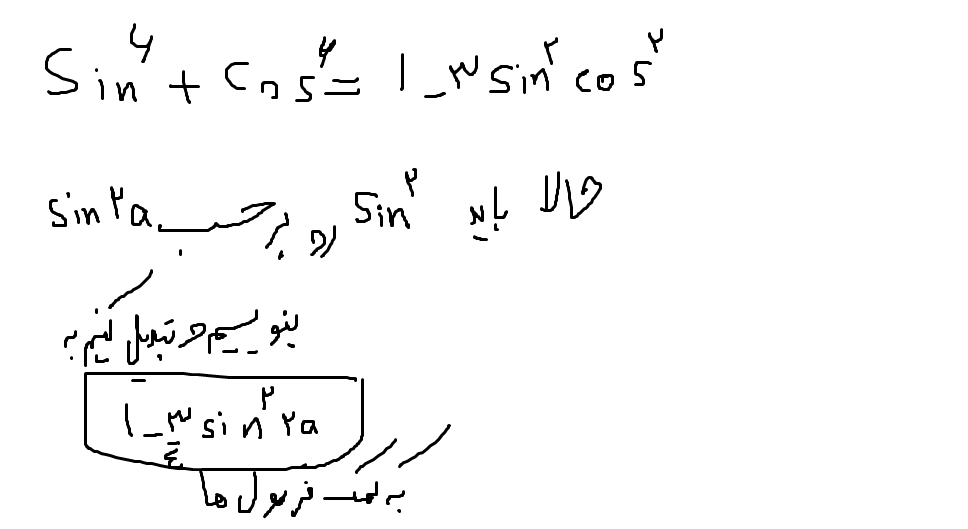 Sin^۶ + Cos^۶ = 1 - ۳ sin^۲ cos^۲
حالا باید Sin^۲ رو بر حسب sin ۲a
بنویسیم و تبدیل کنیم به
1 - ۳/٤ sin^۲ ۲a
به کمک فرمول ها